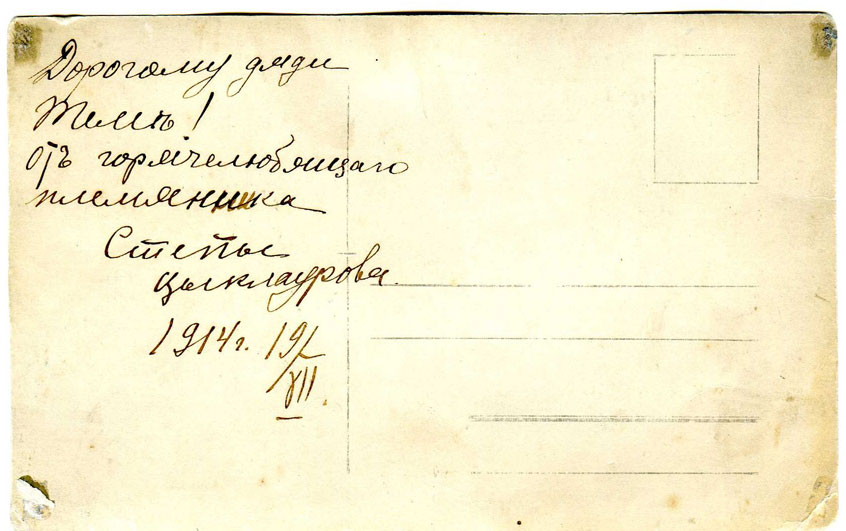 Дорогому дяди
Теме!
отъ горячелюбящаго
племяника
Степы
Цыклаурова
1914 г. 19/VII.